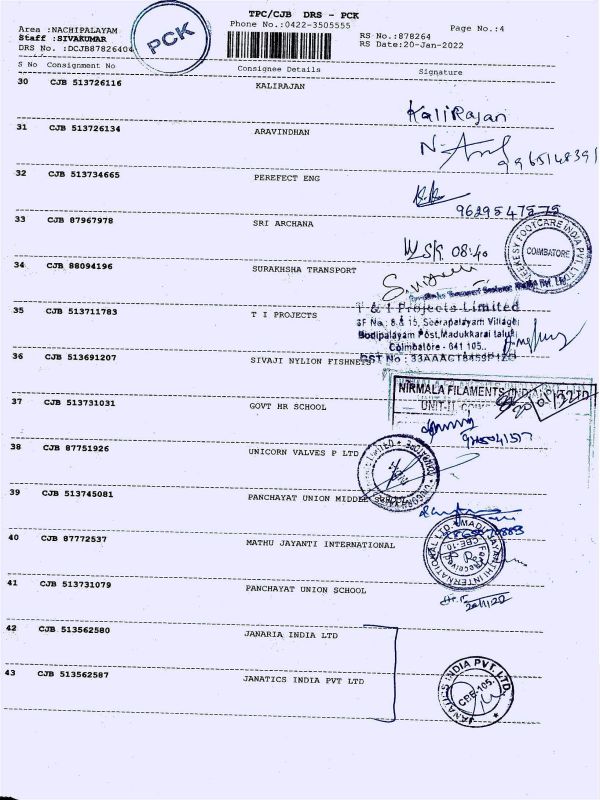 TPC/CJB DRS - PCK
Phone No.:0422-3505555
Page No.:4
Area :NACHIPALAYAM
Staff :SIVAKUMAR
DRS No. :DCJB87826404
PCK
RS No.:878264
RS Date:20-Jan-2022
S No Consignment No Consignee Details Signature
30 CJB 513726116 KALIRAJAN
KaliRajan
31 CJB 513726134 ARAVINDHAN
9965148391
32 CJB 513734665 PEREFECT ENG
9629547575
33 CJB 87967978 SRI ARCHANA
08:40
FOOTCARE INDIA PVT. LTD.
COIMBATORE
34 CJB 88094196 SURAKHSHA TRANSPORT
35 CJB 513711783 T I PROJECTS
T & I Projects Limited
SF No : 8 & 15, Seerapalayam Village
Bodipalayam Post, Madukkarai taluk
Coimbatore - 641 105.
GST No :
36 CJB 513691207 SIVAJI NYLION FISHNETS
NIRMALA FILAMENTS
UNIT-II
37 CJB 513731031 GOVT HR SCHOOL
38 CJB 87751926 UNICORN VALVES P LTD
39 CJB 513745081 PANCHAYAT UNION MIDDLE
40 CJB 87772537 MATHU JAYANTI INTERNATIONAL
INTERNATIONAL LTD.
CBE-10
41 CJB 513731079 PANCHAYAT UNION SCHOOL
42 CJB 513562580 JANARIA INDIA LTD
43 CJB 513562587 JANATICS INDIA PVT LTD
JANATICS INDIA PVT. LTD.
CBE-105.